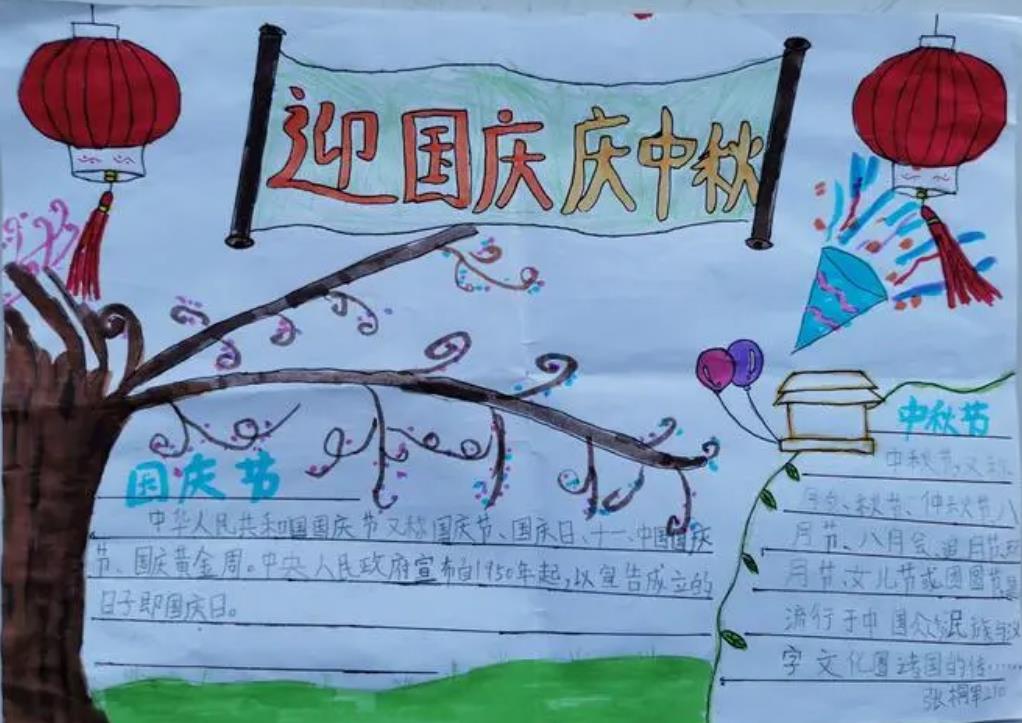 迎国庆 庆中秋
国庆节
中华人民共和国国庆节又称国庆节、国庆日、十一、中国国庆
节、国庆黄金周。中央人民政府宣布自1950年起,以宣告成立的
日子即国庆日。
中秋节
中秋节,又称
月夕、秋节、仲秋节、八
月节、八月会、追月节、
月节、女儿节或团圆节,是
流行于中国众多民族与汉
字文化圈诸国的传……
张